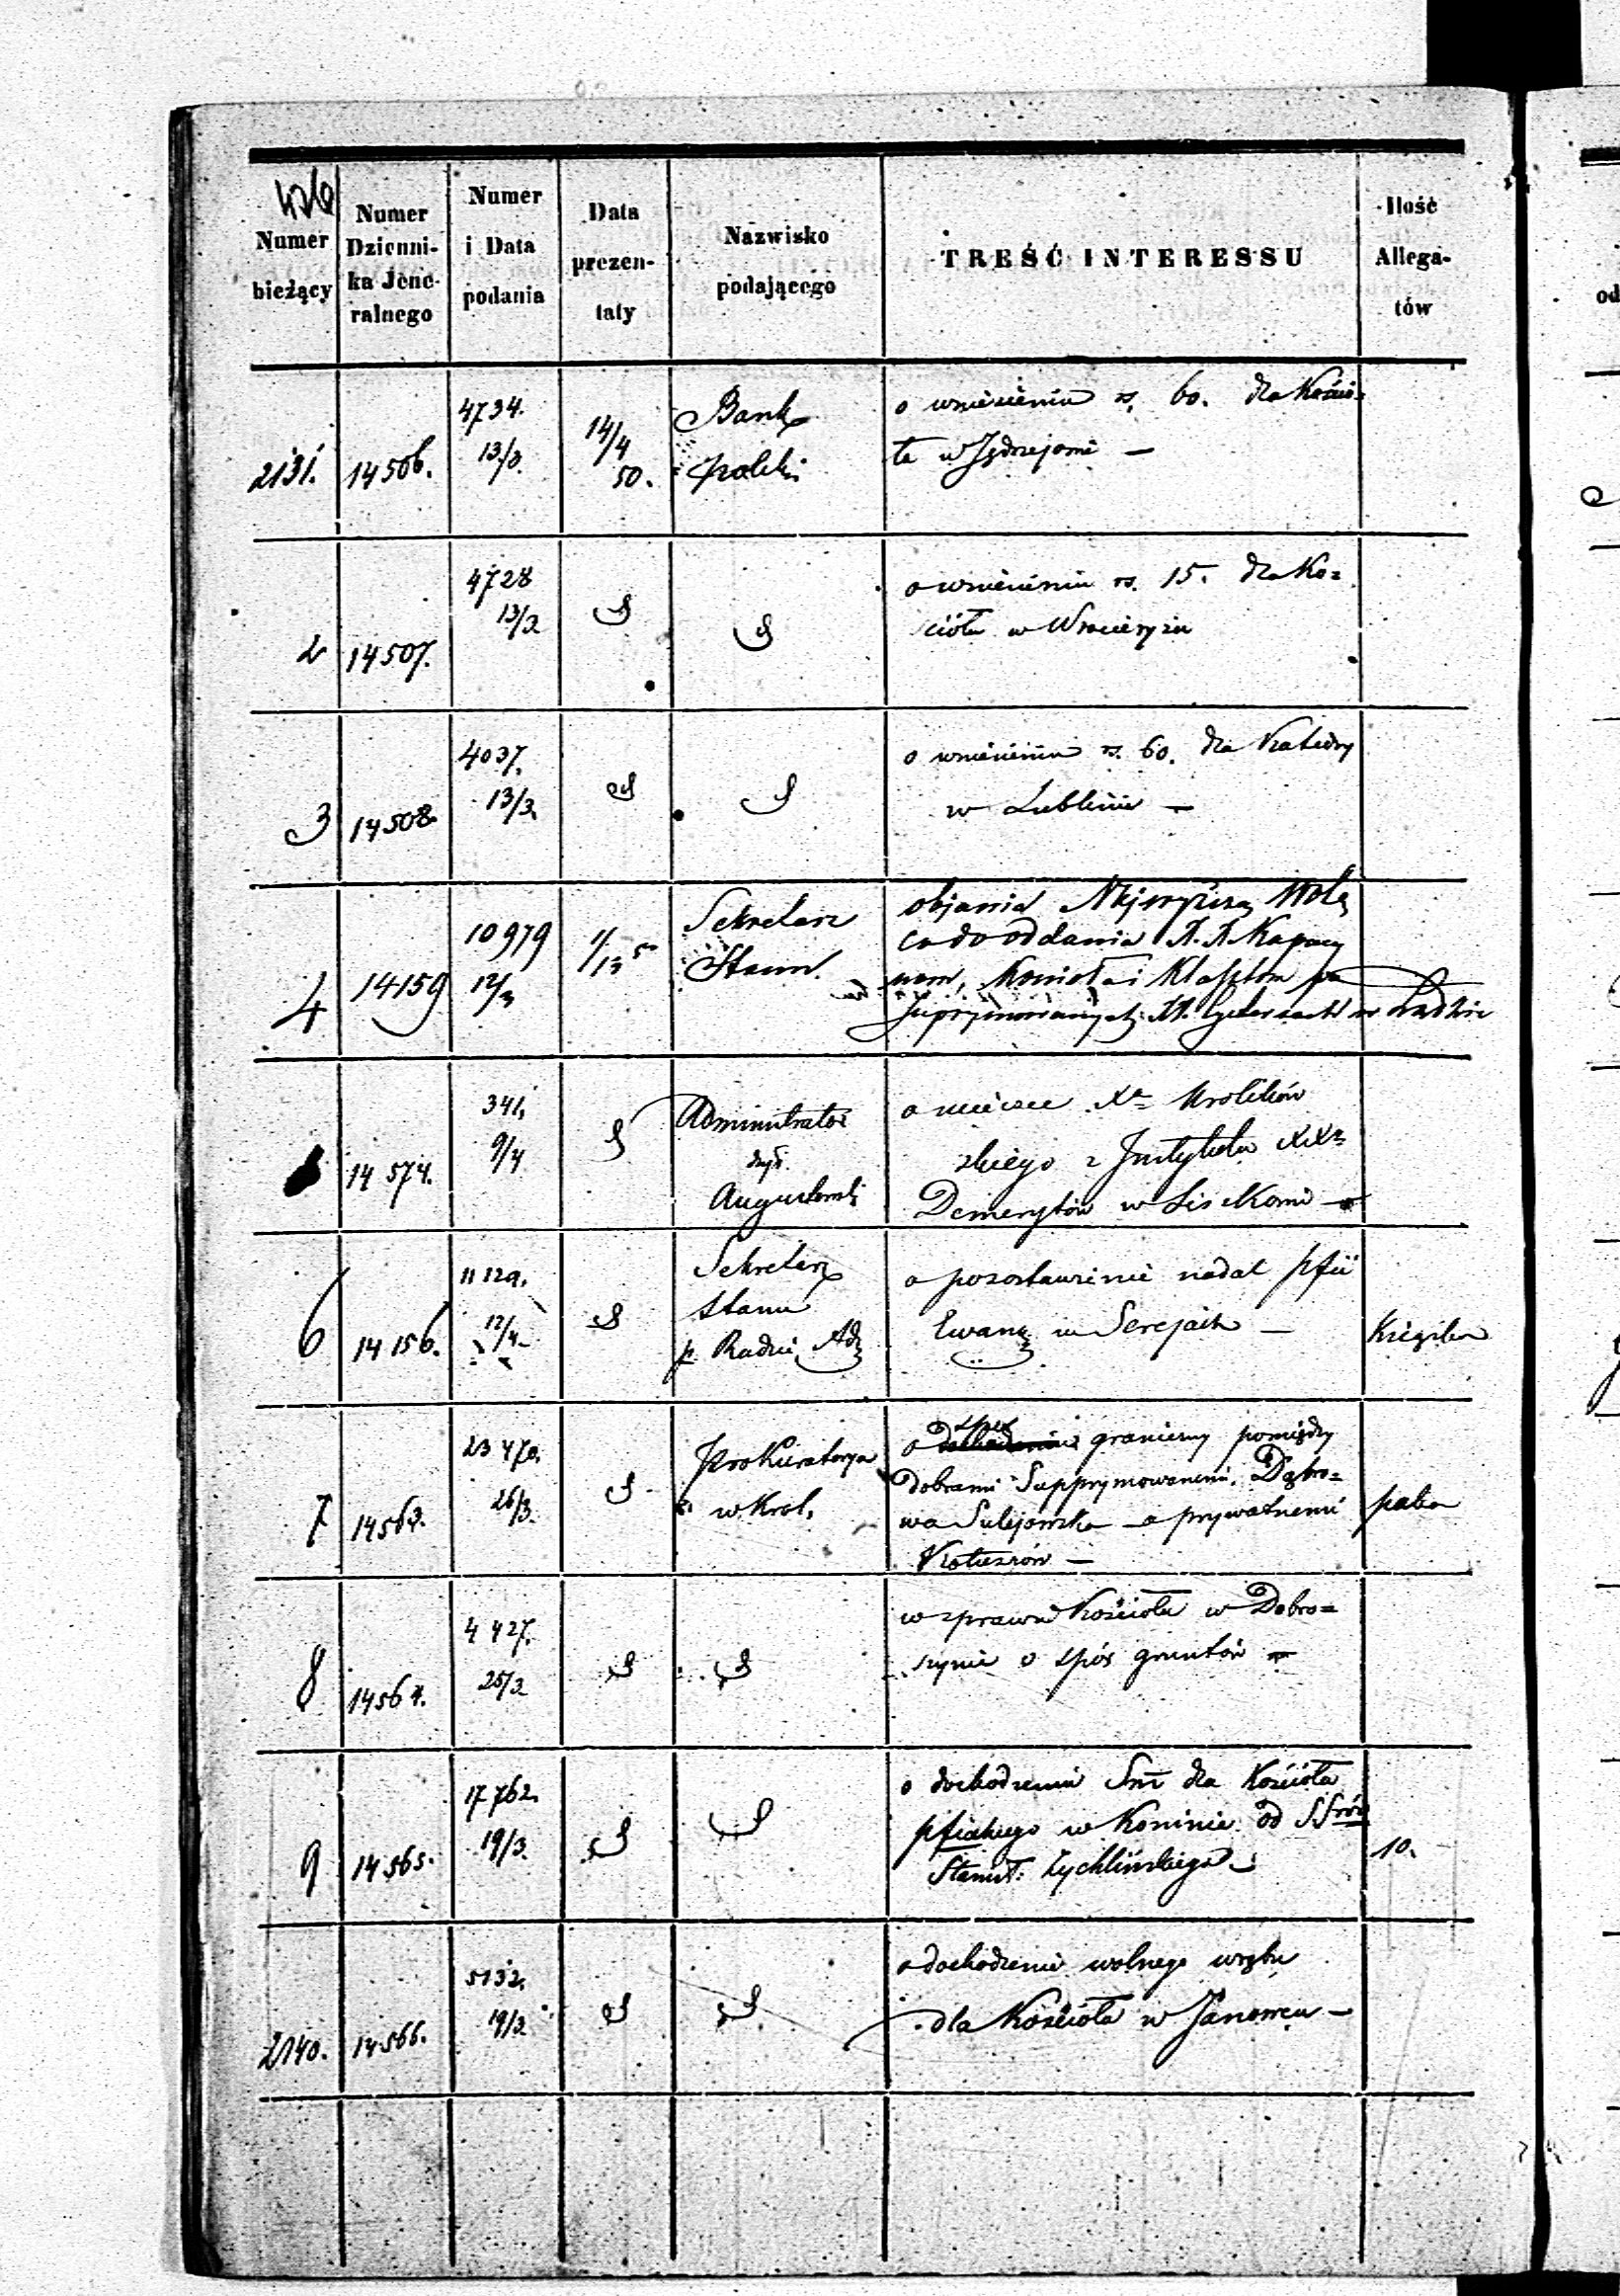 426
Numer
bieżący
Numer
Dzienni-
ka Jene-
ralnego
Numer
i Data
podania
Data
prezen-
taty
Nazwisko
podającego
TREŚĆ INTERESSU
Ilość
Allega-
tów
2131. 14506.
4734.
13/3.
14/4
50.
Bank
polski
o wniesieniu rs. 60. dla Kościo=
ła w Jędrzejowie —
2 14507.
4728
13/3
o wniesieniu rs. 15. dla Ko=
ścioła w Wrocieryżu
3 14508.
4037.
13/3.
o wniesieniu rs. 60. dla Katedry
w Lublinie —
4 14159
10979
12/3
Sekretarz
Stanu.
objawia Najwyższą Wolę
co do oddania
Kościoła i Klasztoru po
suprymowanych w Lądzie
14574.
341.
9/4
Administrator
dyc.
Augustowski
o ucieczce Xa Krolikow
skiego z Instytutu XX
Demerytów w Liszkowie —
6 14156.
11129.
12/4
Sekretarz
Stanu
p. Radzie Adm
o pozostawienie nadal pfii
Ewang. w Serejach —
Książka
7 14563.
23470.
26/3.
Prokuratorya
w Krol.
o spór graniczny pomiędzy
dobrami Supprymowanemi Dąbro=
wa Sulejowska — a prywatnemi
Kotuszów —
paka
8 14564.
4427.
25/3
w sprawie Kościoła w Dobro=
szynie o spór gruntów —
9 14565.
17762.
19/3.
o dochodzenie Sm dla Kościoła
pfialnego w Koninie od SSrów
Stanisł: Żychlińskiego —
10.
2140. 14566.
5132.
19/3
o dochodzenie wolnego wrębu
dla Kościoła w Janowcu —